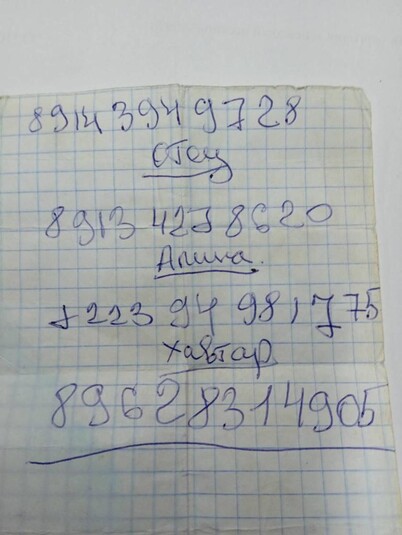 89143949728
Отец
89134278620
Алина.
+223 94 98 17 75
Хавтар
89628314905